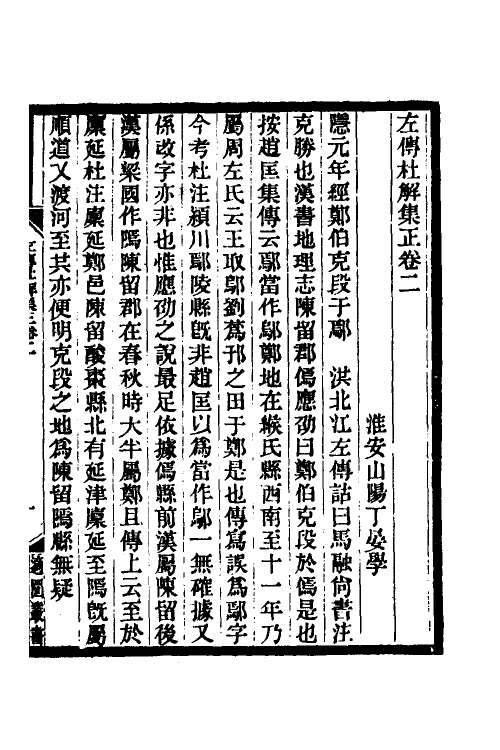 左傳杜解集正卷二
淮安山陽丁晏學
隱元年經鄭伯克段于鄢　洪北江左傳詁曰馬融尙書注
克勝也漢書地理志陳留郡傿應劭曰鄭伯克段於傿是也
按趙匡集傳云鄢當作鄔鄭地在緱氏縣西南至十一年乃
屬周左氏云王取鄔劉蒍邘之田于鄭是也傳寫誤爲鄢字
今考杜注潁川鄢陵縣旣非趙匡以爲當作鄔一無確據又
係改字亦非也惟應劭之說最足依據傿縣前漢屬陳留後
漢屬梁國作隔陳留郡在春秋時大半屬鄭且傳上云至於
廩延杜注廩延鄭邑陳留酸棗縣北有延津廩延至隔旣屬
順道又渡河至其亦便明克段之地爲陳留隔縣無疑
左傳杜解集正卷二
一
適園叢書